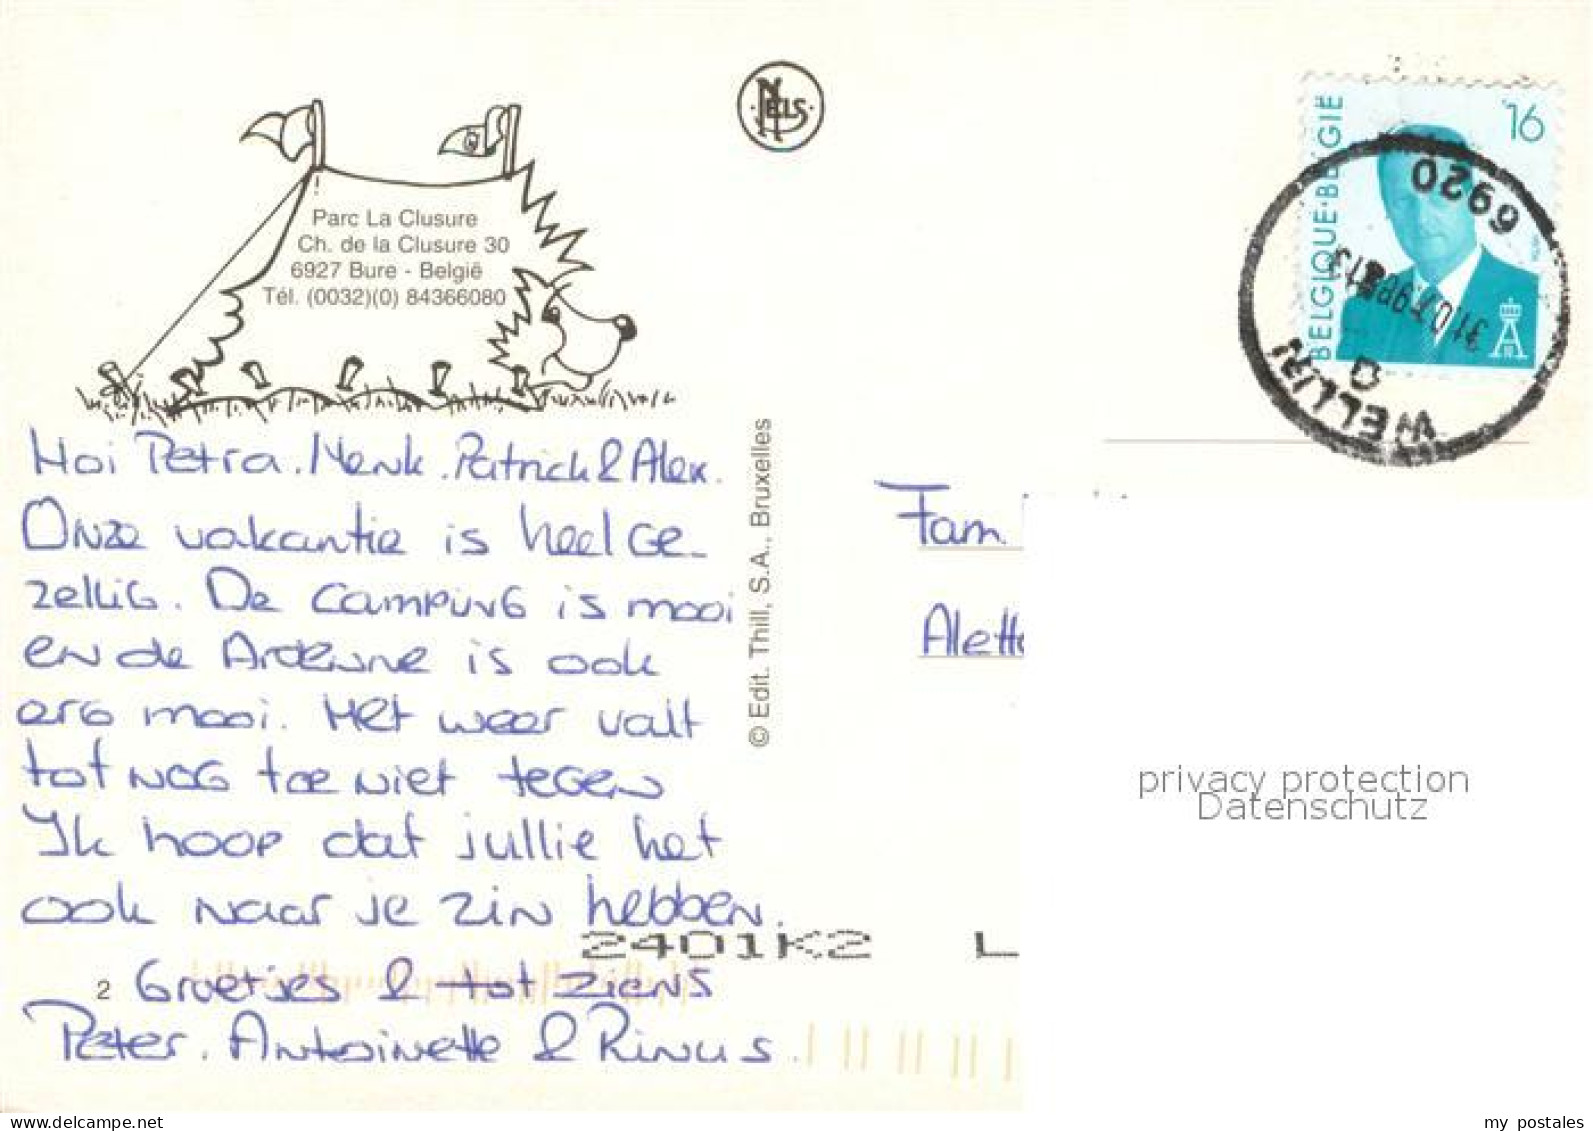 NELS
Parc La Clusure
Ch. de la Clusure 30
6927 Bure - België
Tél. (0032)(0) 84366080
Hoi Petra. Henk. Patrick & Alex.
Onze vakantie is heel ge-
zellig. De camping is mooi
en de Ardenne is ook
erg mooi. Het weer valt
tot nog toe niet tegen
Ik hoop dat jullie het
ook naar je zin hebben.
2 Groetjes & tot ziens
Peter. Antoinette & Rinus.
© Edit. Thill, S.A., Bruxelles
BELGIQUE·BELGIË
16
6920
WELLIN
Fam.
Alett
privacy protection
Datenschutz
2401K2 L
my postales